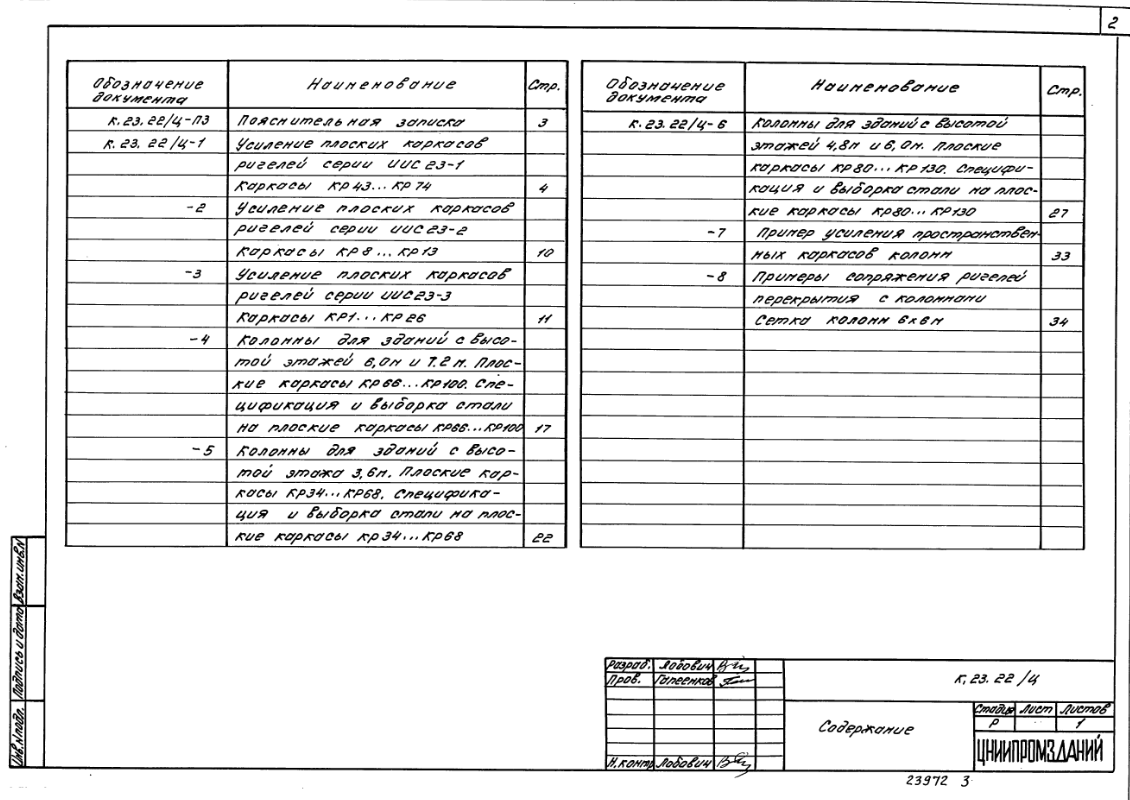 2
Обозначение документа Наименование Стр.
К.23.22/Ц-ПЗ Пояснительная записка 3
К.23.22/Ц-1 Усиление плоских каркасов
ригелей серии ИИС 23-1
Каркасы КР43...КР74 4
-2 Усиление плоских каркасов
ригелей серии ИИС 23-2
Каркасы КР8...КР13 10
-3 Усиление плоских каркасов
ригелей серии ИИС23-3
Каркасы КР1...КР26 11
-4 Колонны для зданий с высо-
той этажей 6,0м и 7.2м. Плос-
кие каркасы КР66...КР100. Спе-
цификация и выборка стали
на плоские каркасы КР66...КР100 17
-5 Колонны для зданий с высо-
той этажа 3,6м. Плоские кар-
касы КР34...КР68. Специфика-
ция и выборка стали на плос-
кие каркасы КР34...КР68 22
Обозначение документа Наименование Стр.
К.23.22/Ц-6 Колонны для зданий с высотой
этажей 4,8м и 6,0м. Плоские
каркасы КР80...КР130. Специфи-
кация и выборка стали на плос-
кие каркасы КР80...КР130 27
-7 Пример усиления пространствен-
ных каркасов колонн 33
-8 Примеры сопряжения ригелей
перекрытия с колоннами
Сетка колонн 6х6м 34
Инв.Nподл. Подпись и дата Взам.инв.N
Разраб. Лобович
Пров. Гапеенков
Н.контр Лобович
К.23.22/Ц
Содержание
Стадия Лист Листов
Р 1
ЦНИИПРОМЗДАНИЙ
23972 3